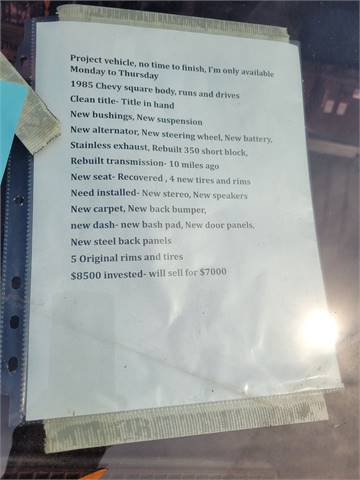 Project vehicle, no time to finish, I'm only available
Monday to Thursday
1985 Chevy square body, runs and drives
Clean title- Title in hand
New bushings, New suspension
New alternator, New steering wheel, New battery,
Stainless exhaust, Rebuilt 350 short block,
Rebuilt transmission- 10 miles ago
New seat- Recovered , 4 new tires and rims
Need installed- New stereo, New speakers
New carpet, New back bumper,
new dash- new bash pad, New door panels,
New steel back panels
5 Original rims and tires
$8500 invested- will sell for $7000